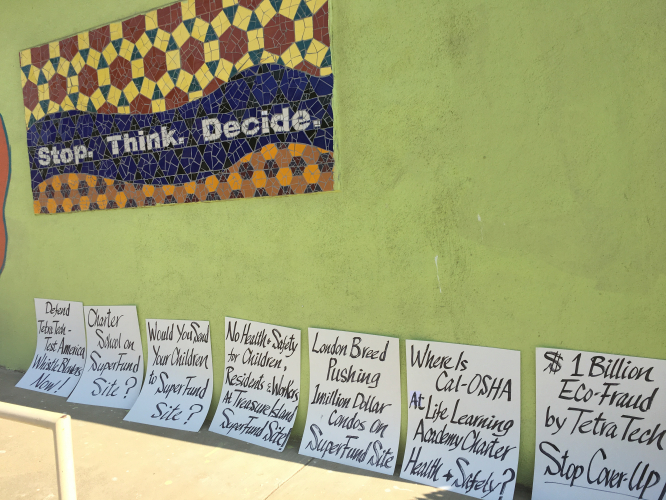 Stop. Think. Decide.
Defend
Tetra Tech -
Test America
Whistle Blowers
Now!
Charter
School on
SuperFund
Site?
Would You Send
Your Children
to SuperFund
Site?
No Health & Safety
for Children,
Residents & Workers
At Treasure Island
SuperFund Site!
London Breed
Pushing
1 million Dollar
Condos on
SuperFund Site
Where Is
Cal-OSHA
At Life Learning
Academy Charter
Health & Safety?
$ 1 Billion
Eco-Fraud
by Tetra Tech
Stop Cover-Up!